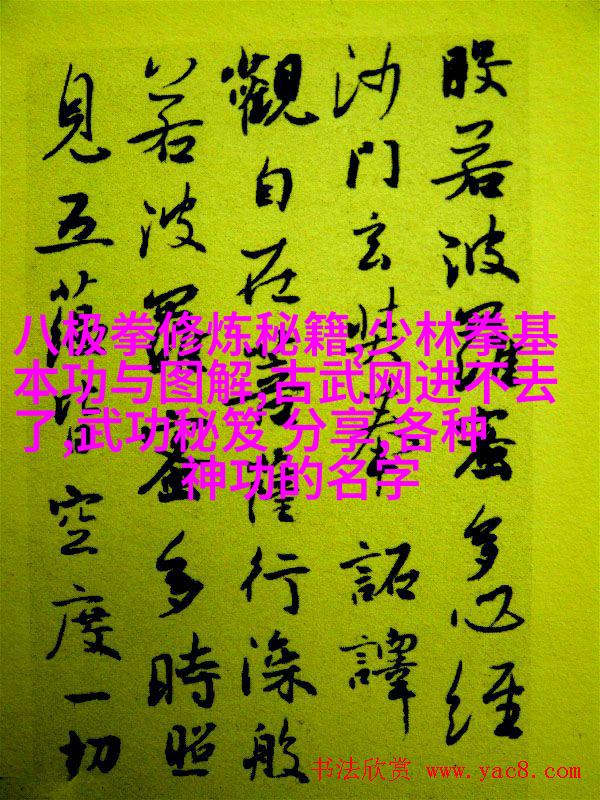 般若波羅蜜多心經
沙門玄奘奉 詔譯
觀自在菩薩行深般
若波羅蜜多時照
見五蘊皆空度一切
八极拳修炼秘籍,少林拳基
本功与图解,古武网进不去
了,武功秘笈 分享,各种
神功的名字
书法欣赏 www.yac8.com